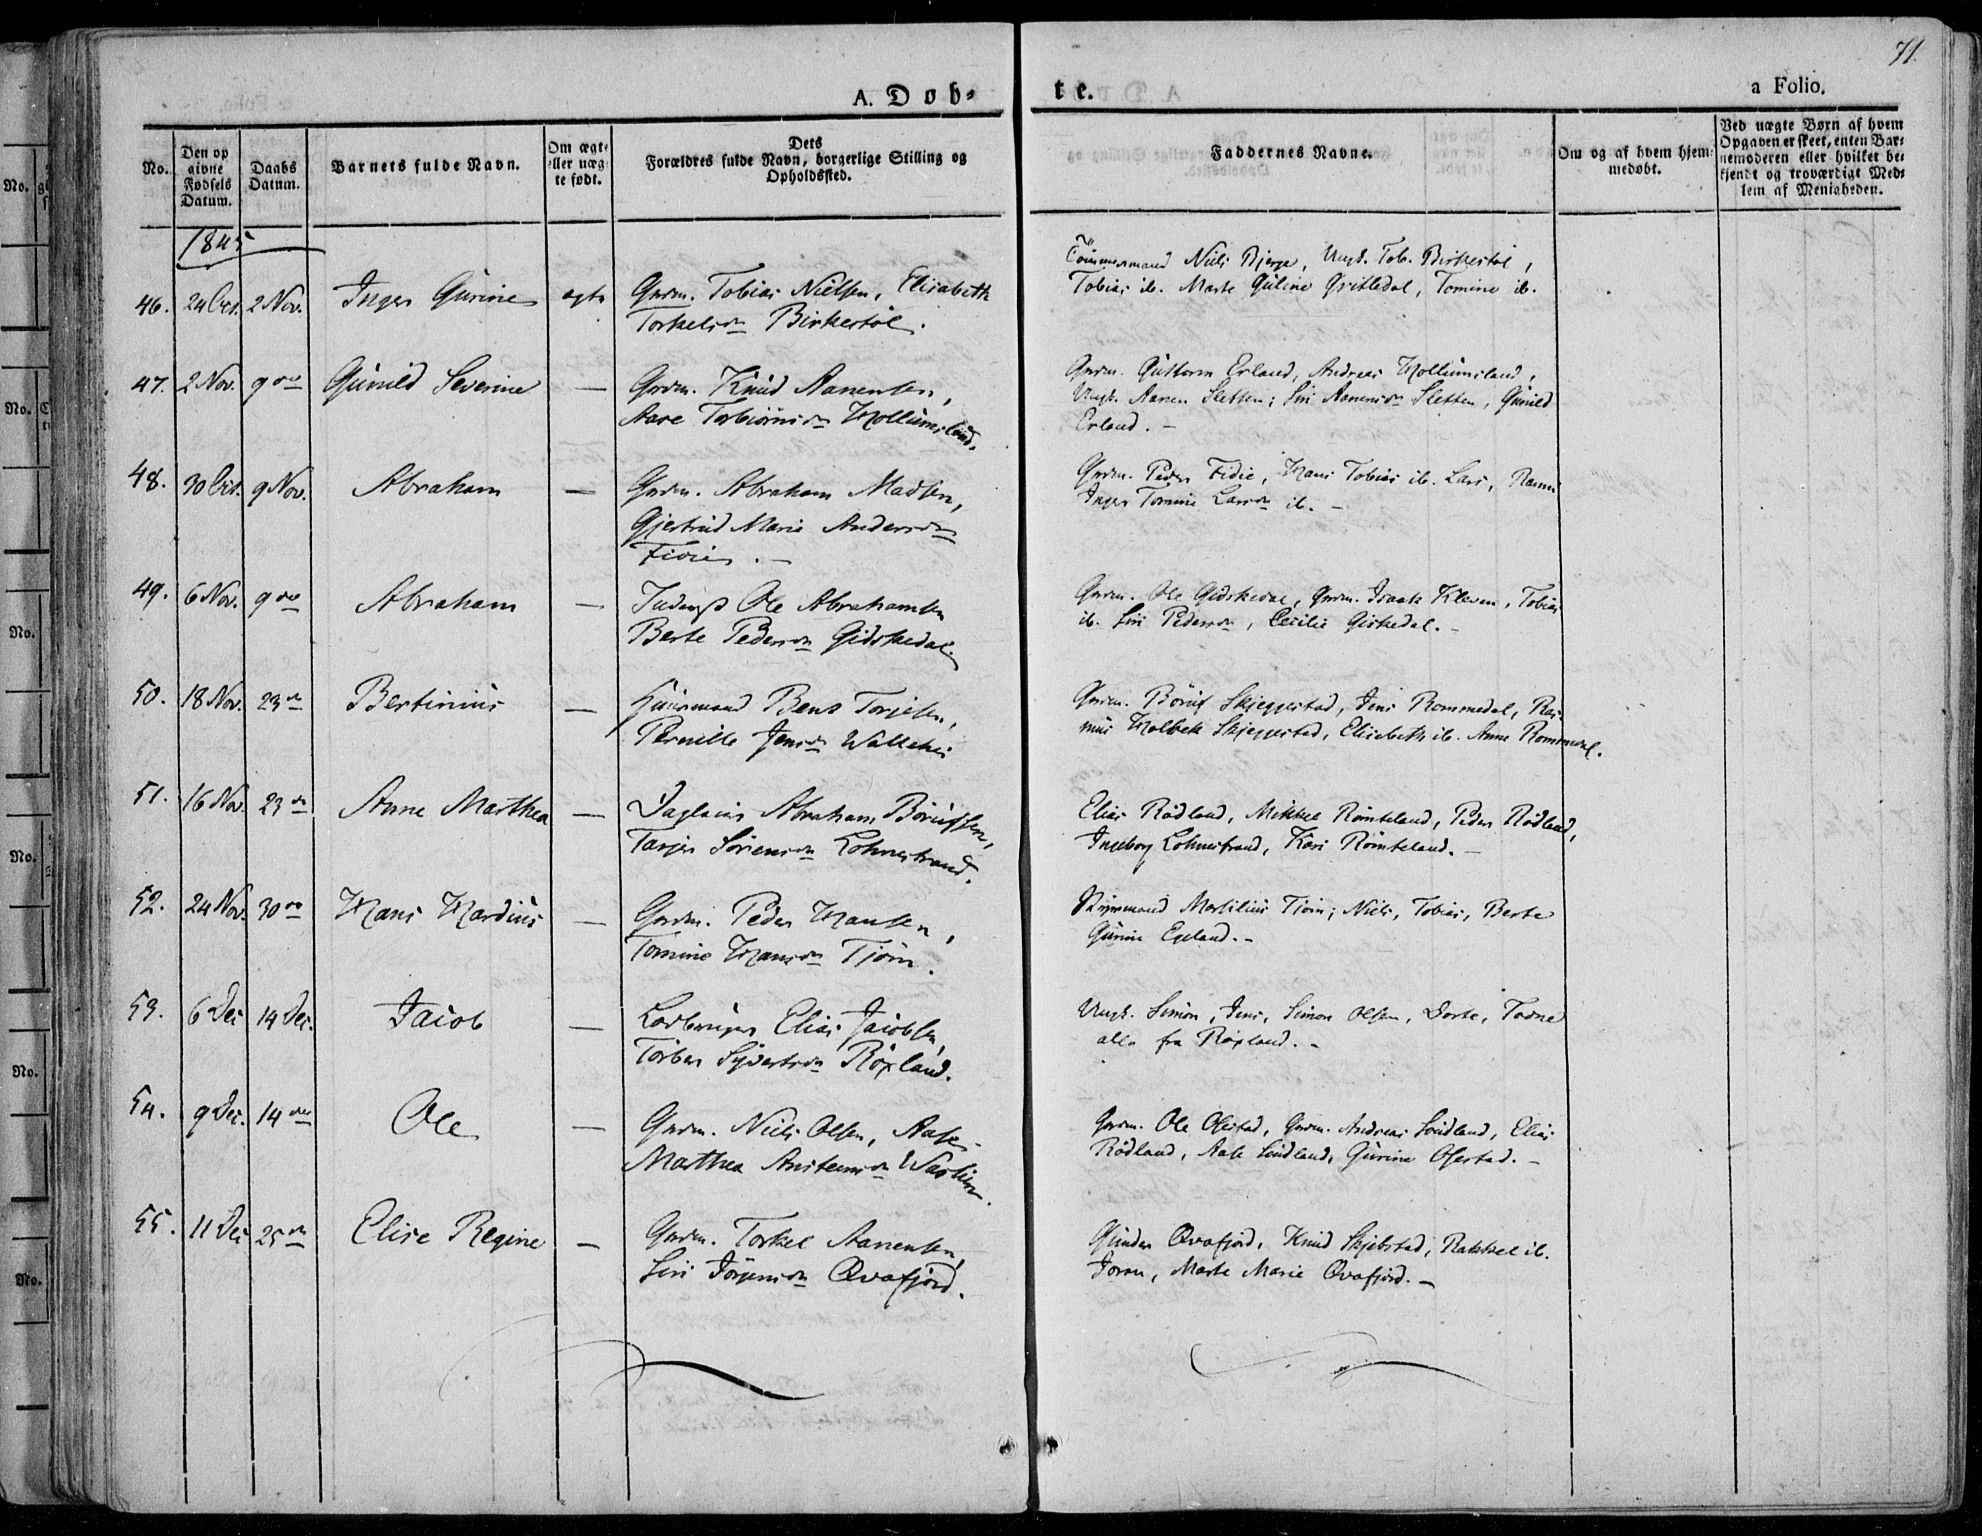 71.
A. Døb-
te.
a Folio.
No.
Den op
givne
Fødsels
Datum.
Daabs
Datum.
Barnets fulde Navn.
Om ægte
eller uæg-
te født.
Dets
Forældres fulde Navn, borgerlige Stilling og
Opholdssted.
Faddernes Navne.
Om og af hvem hjem-
medøbt.
Ved uægte Børn af hvem
Opgaven er skeet, enten Bar-
nemoderen eller hvilket be-
kjendt og troværdigt Med-
lem af Menigheden.
1845
46. 24 Oct. 2 Nov. Inger Gurine ægte Grdm. Tobias Nielsen, Elisabeth
Torkelsdn Birkestøl.
Tømmermand Niels Bjerge, Ungk. Tob. Birkestøl,
Tobias ib. Marte Guline Tomine ib.
47. 2 Nov. 9 de Gunild Severine — Grdm. Knud Aanensen,
Aase Torbiørnsdn Hollumsland.
Grdm. Guttorm Erland, Andreas Hollumsland,
Ungk. Aanen Sletten; Siri Aanensdn Sletten, Gunild
Erland. —
48. 30 Oct. 9 Nov. Abraham — Grdm. Abraham Madsen,
Gjertrud Marie Andersdn
Fidie. —
Grdm. Peder Fidie, Hans Tobias ib. Lars,
Inger Tomine Larsdn ib. —
49. 6 Nov. 9 de Abraham — Inderst Ole Abrahamsen
Berte Pedersdn Gidskedal.
Grdm. Ole Gidskedal, Grdm. Isaak Kleven, Tobias
ib. Siri Pedersdn, Cecilie Giskedal. —
50. 18 Nov. 23 de Bertinius — Huusmand Bent Torjesen,
Pernille Jensdn
Grdm. Børuf Skjeggestad, Jens Rommedal, Ras-
mus Holbek Skjeggestad, Elisabeth ib. Anne Rommedal.
51. 16 Nov. 23 de Anne Marthea — Daglejer Abraham Børufsen,
Tarjer Sørensdn Lohnestrand.
Elias Rødland, Mikkel Rømteland, Peder Rødland,
Ingeborg Lohnestrand, Kari Rømteland. —
52. 24 Nov. 30 de Hans Mardius — Grdm. Peder Hansen,
Tomine Hansdn Tjøm.
Martilius Tjøm; Niels, Tobias, Berte
Gurine Egeland. —
53. 6 Dec 14 Dec. Jacob — Elias Jacobsen,
Torber Syvertsdn Røxland.
Ungk. Simon, Jens, Simon Olsen, Dorte, Todne
alle fra Røxland. —
54. 9 Dec. 14 de Ole — Grdm. Niels Olsen, Aase
Marthea Anstensdn
Grdm. Ole Ofestad, Grdm. Andreas Lindland, Elias
Rødland, Aase Lindland, Gurine Ofestad. —
55. 11 Dec 25 de Elise Regine — Grdm. Torkel Aanensen,
Siri Jørgensdn Qvafjord.
Gunder Qvafjord, Knud Skjebstad, Rakkel ib.
Joran, Marte Marie Qvafjord. —